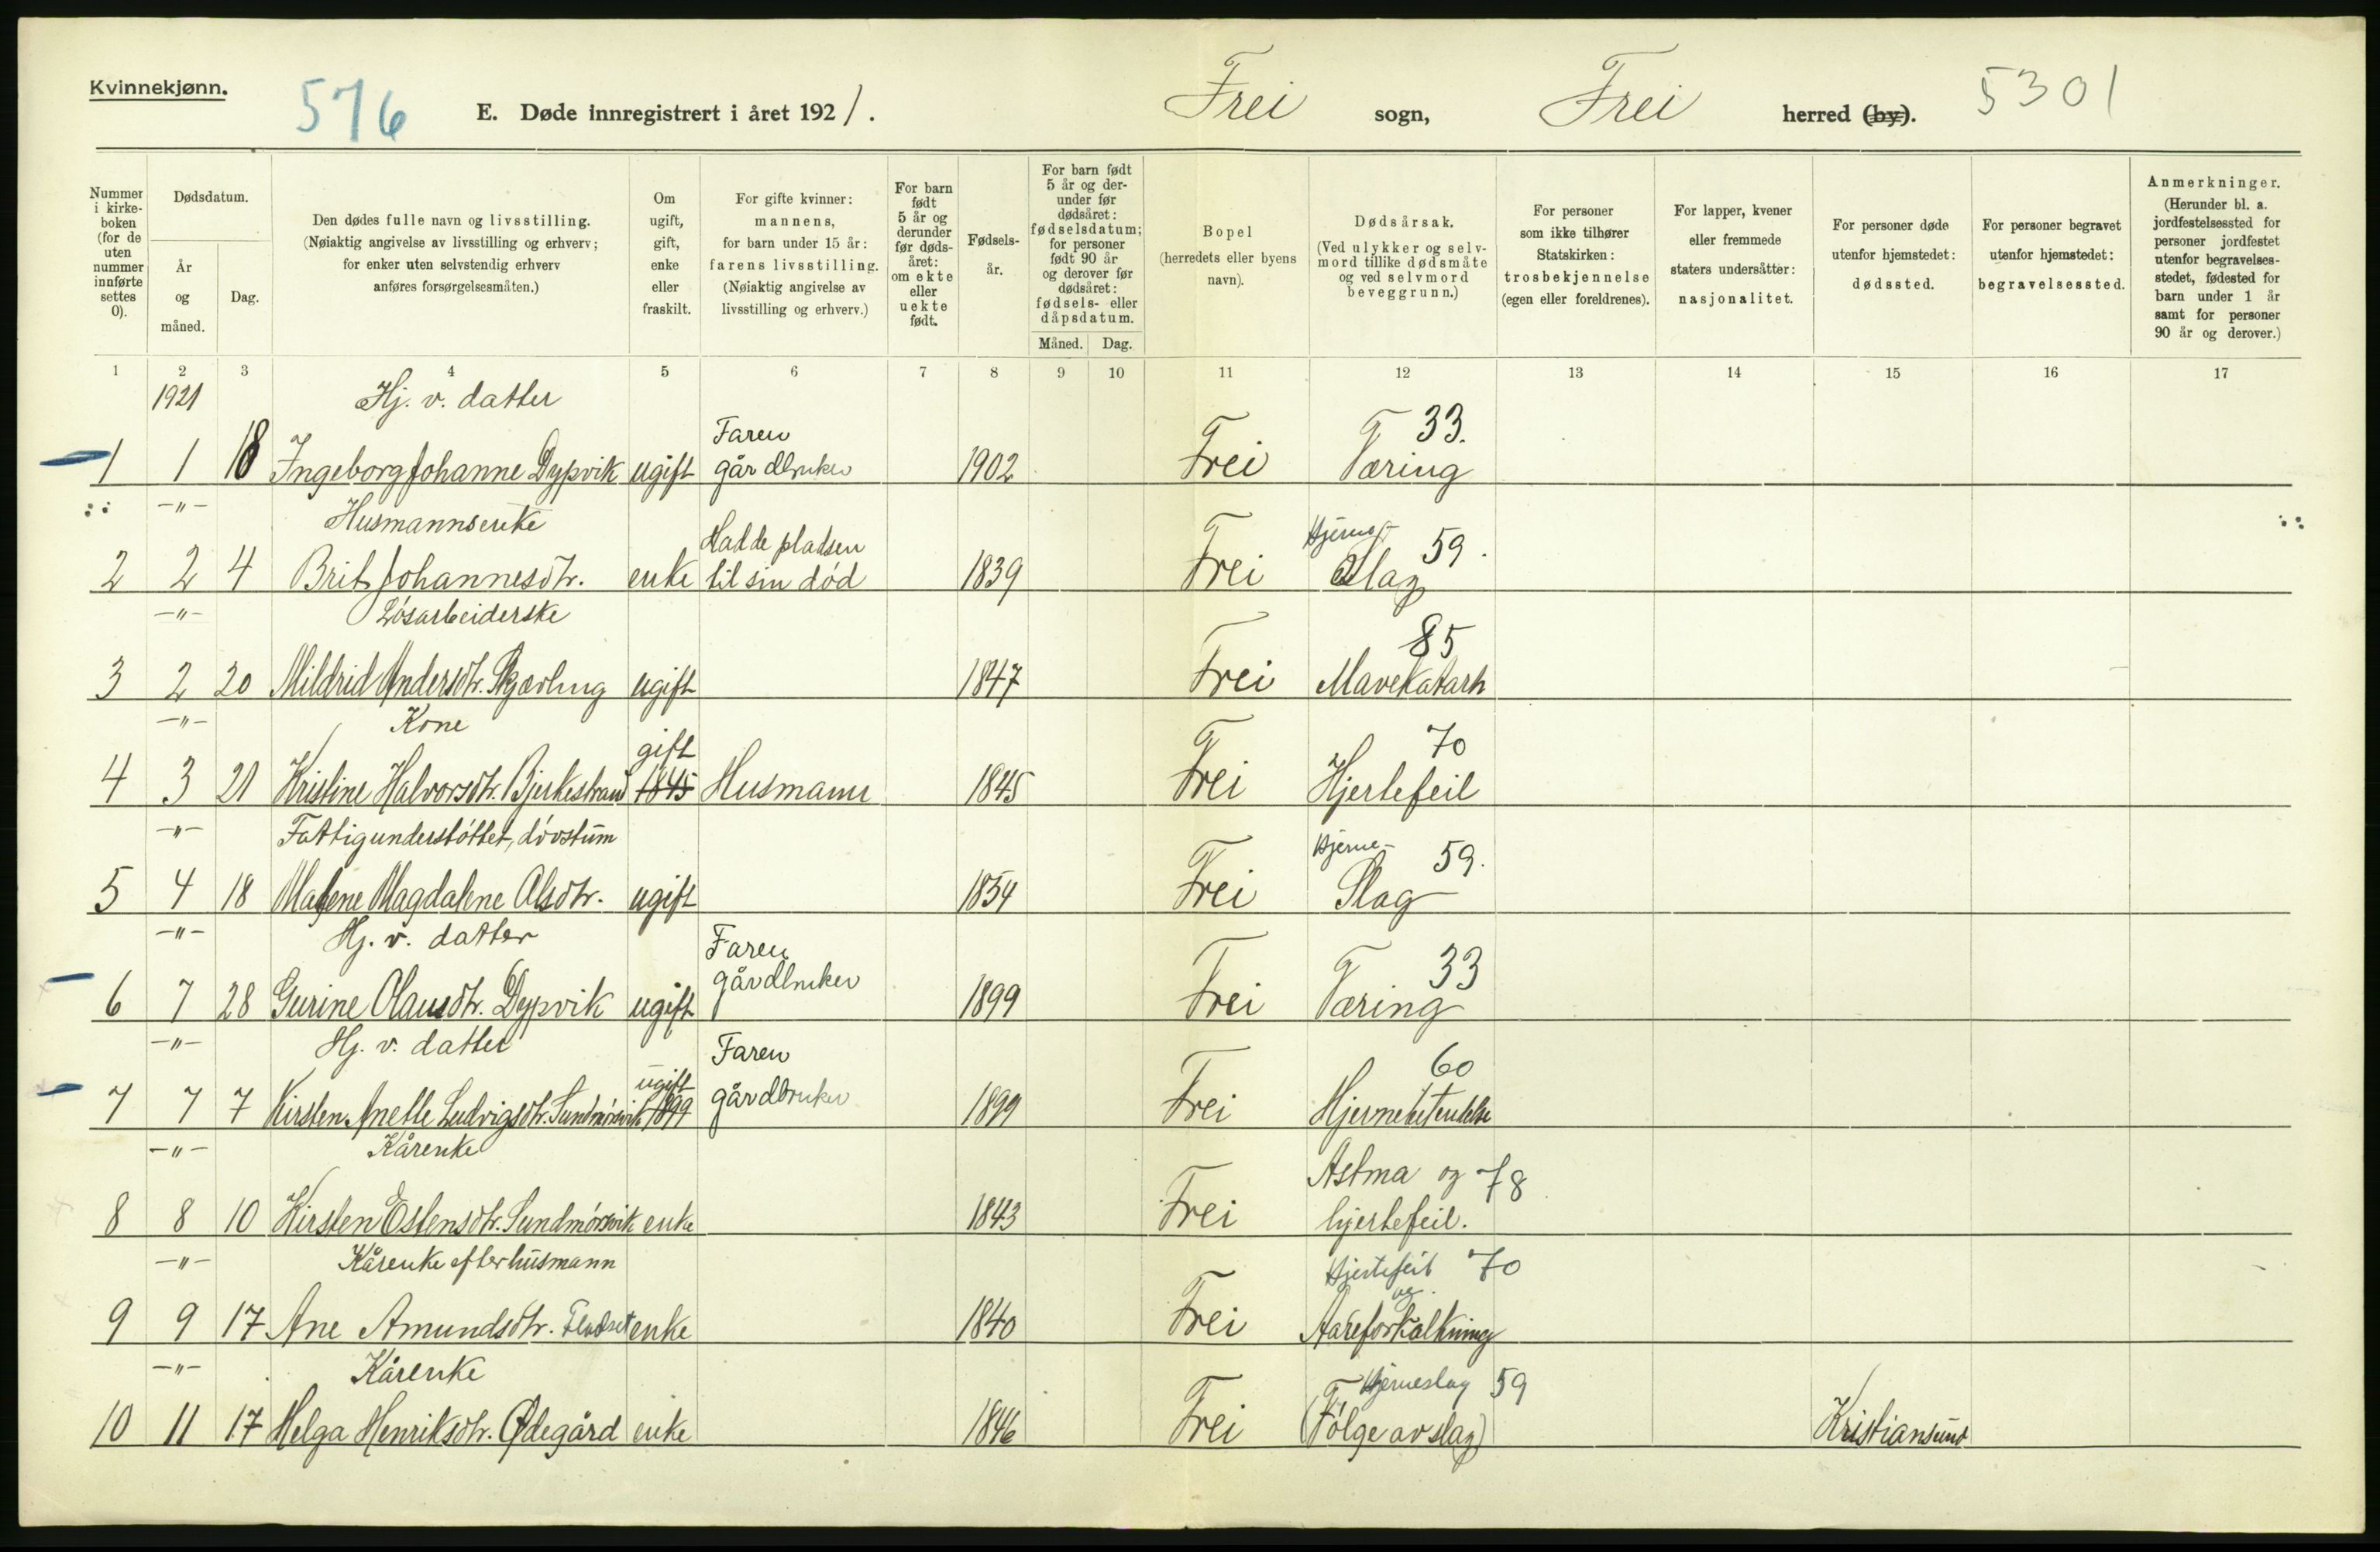 Kvinnekjønn.
576
E. Døde innregistrert i året 1921.
Frei sogn, Frei herred (by).
5301
Nummer i kirke-boken (for de uten nummer innførte settes 0).
Dødsdatum.
År og måned.
Dag.
Den dødes fulle navn og livsstilling. (Nøiaktig angivelse av livsstilling og erhverv; for enker uten selvstendig erhverv anføres forsørgelsesmåten.)
Om ugift, gift, enke eller fraskilt.
For gifte kvinner: mannens, for barn under 15 år: farens livsstilling. (Nøiaktig angivelse av livsstilling og erhverv.)
For barn født 5 år og derunder før døds-året: om ekte eller uekte født.
Fødsels-år.
For barn født 5 år og der-under før dødsåret: fødselsdatum; for personer født 90 år og derover før dødsåret: fødsels- eller dåpsdatum.
Måned. Dag.
Bopel (herredets eller byens navn).
Dødsårsak. (Ved ulykker og selv-mord tillike dødsmåte og ved selvmord beveggrunn.)
For personer som ikke tilhører Statskirken: trosbekjennelse (egen eller foreldrenes).
For lapper, kvener eller fremmede staters undersåtter: nasjonalitet.
For personer døde utenfor hjemstedet: dødssted.
For personer begravet utenfor hjemstedet: begravelsessted.
Anmerkninger. (Herunder bl. a. jordfestelsessted for personer jordfestet utenfor begravelses-stedet, fødested for barn under 1 år samt for personer 90 år og derover.)
1 2 3 4 5 6 7 8 9 10 11 12 13 14 15 16 17
1921 Hj. v. datter
1 1 18 Ingeborg Johanne Dypvik ugift Faren gårdbruker 1902 Frei Tæring 33.
-"- Husmannsenke
2 2 4 Brit Johannesdtr. enke Hadde pladsen til sin død 1839 Frei Hjerne- Slag 59.
-"- Løsarbeiderske
3 2 20 Mildrid Andersdtr. ugift 1847 Frei Mavekatarh 85
-"- Kone
4 3 21 Kristine Halvorsdtr. Bjerkestrand gift 1845 Husmann 1845 Frei Hjertefeil 70
-"- Fattigunderstøttet, døvstum
5 4 18 Malene Magdalene Olsdtr. ugift 1854 Frei Hjerne- Slag 59.
-"- Hj. v. datter
6 7 28 Gurine Olausdtr. Dypvik ugift Faren gårdbruker 1899 Frei Tæring 33
-"- Hj. v. datter
7 7 7 Kirsten Anette Ludvigsdtr. Sundmørsvik ugift 1899 Faren gårdbruker 1899 Frei Hjernebetendelse 60
-"- Kårenke
8 8 10 Kirsten Estensdtr. Sundmørsvik enke 1843 Frei Astma og hjertefeil. 78
-"- Kårenke efter husmann
9 9 17 Ane Amundsdtr. Flatset enke 1840 Frei Hjertefeil og Aareforkalkning 70
-"- Kårenke
10 11 17 Helga Henriksdtr. Ødegård enke 1846 Frei Hjerneslag 59 (Følge av slag) Kristiansund